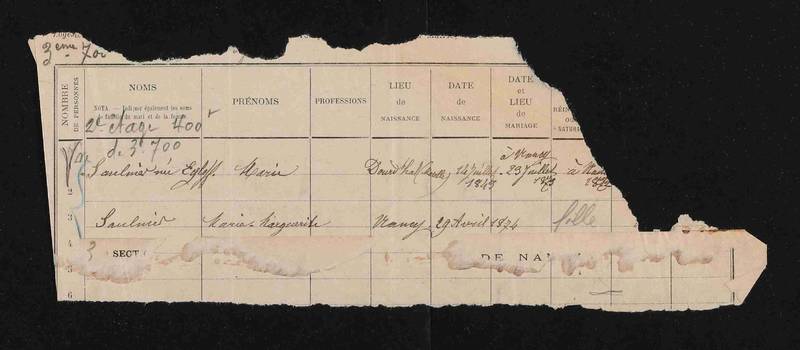 3ème 700
NOMBRE DE PERSONNES
NOMS
NOTA. — Indiquer également les noms
de famille du mari et de la femme
PRÉNOMS
PROFESSIONS
LIEU
de
NAISSANCE
DATE
de
NAISSANCE
DATE
et
LIEU
de
MARIAGE
RÉIN
OU
NATURA
2e étage 400f
d. 3e 700
Saulnier née Egloff Marie 14 Juillet 1849 à Nancy 23 Juillet 1873 à
2
3 Saulnier Marie Marguerite Nancy 29 Avril 1874 folle
3 SECT DE NA
5
6